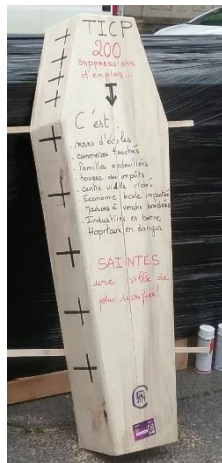 TICP
200
suppressions
d'emplois...
C'est :
. moins d'écoles
. commerces touchés
. familles endeuillées
. hausse des impôts
. centre ville vidée
. Economie locale impactée
. Maisons à vendre bradées
. Industries en berne
. Hopitaux en danger
SAINTES
une ville de
plus sacrifiée!